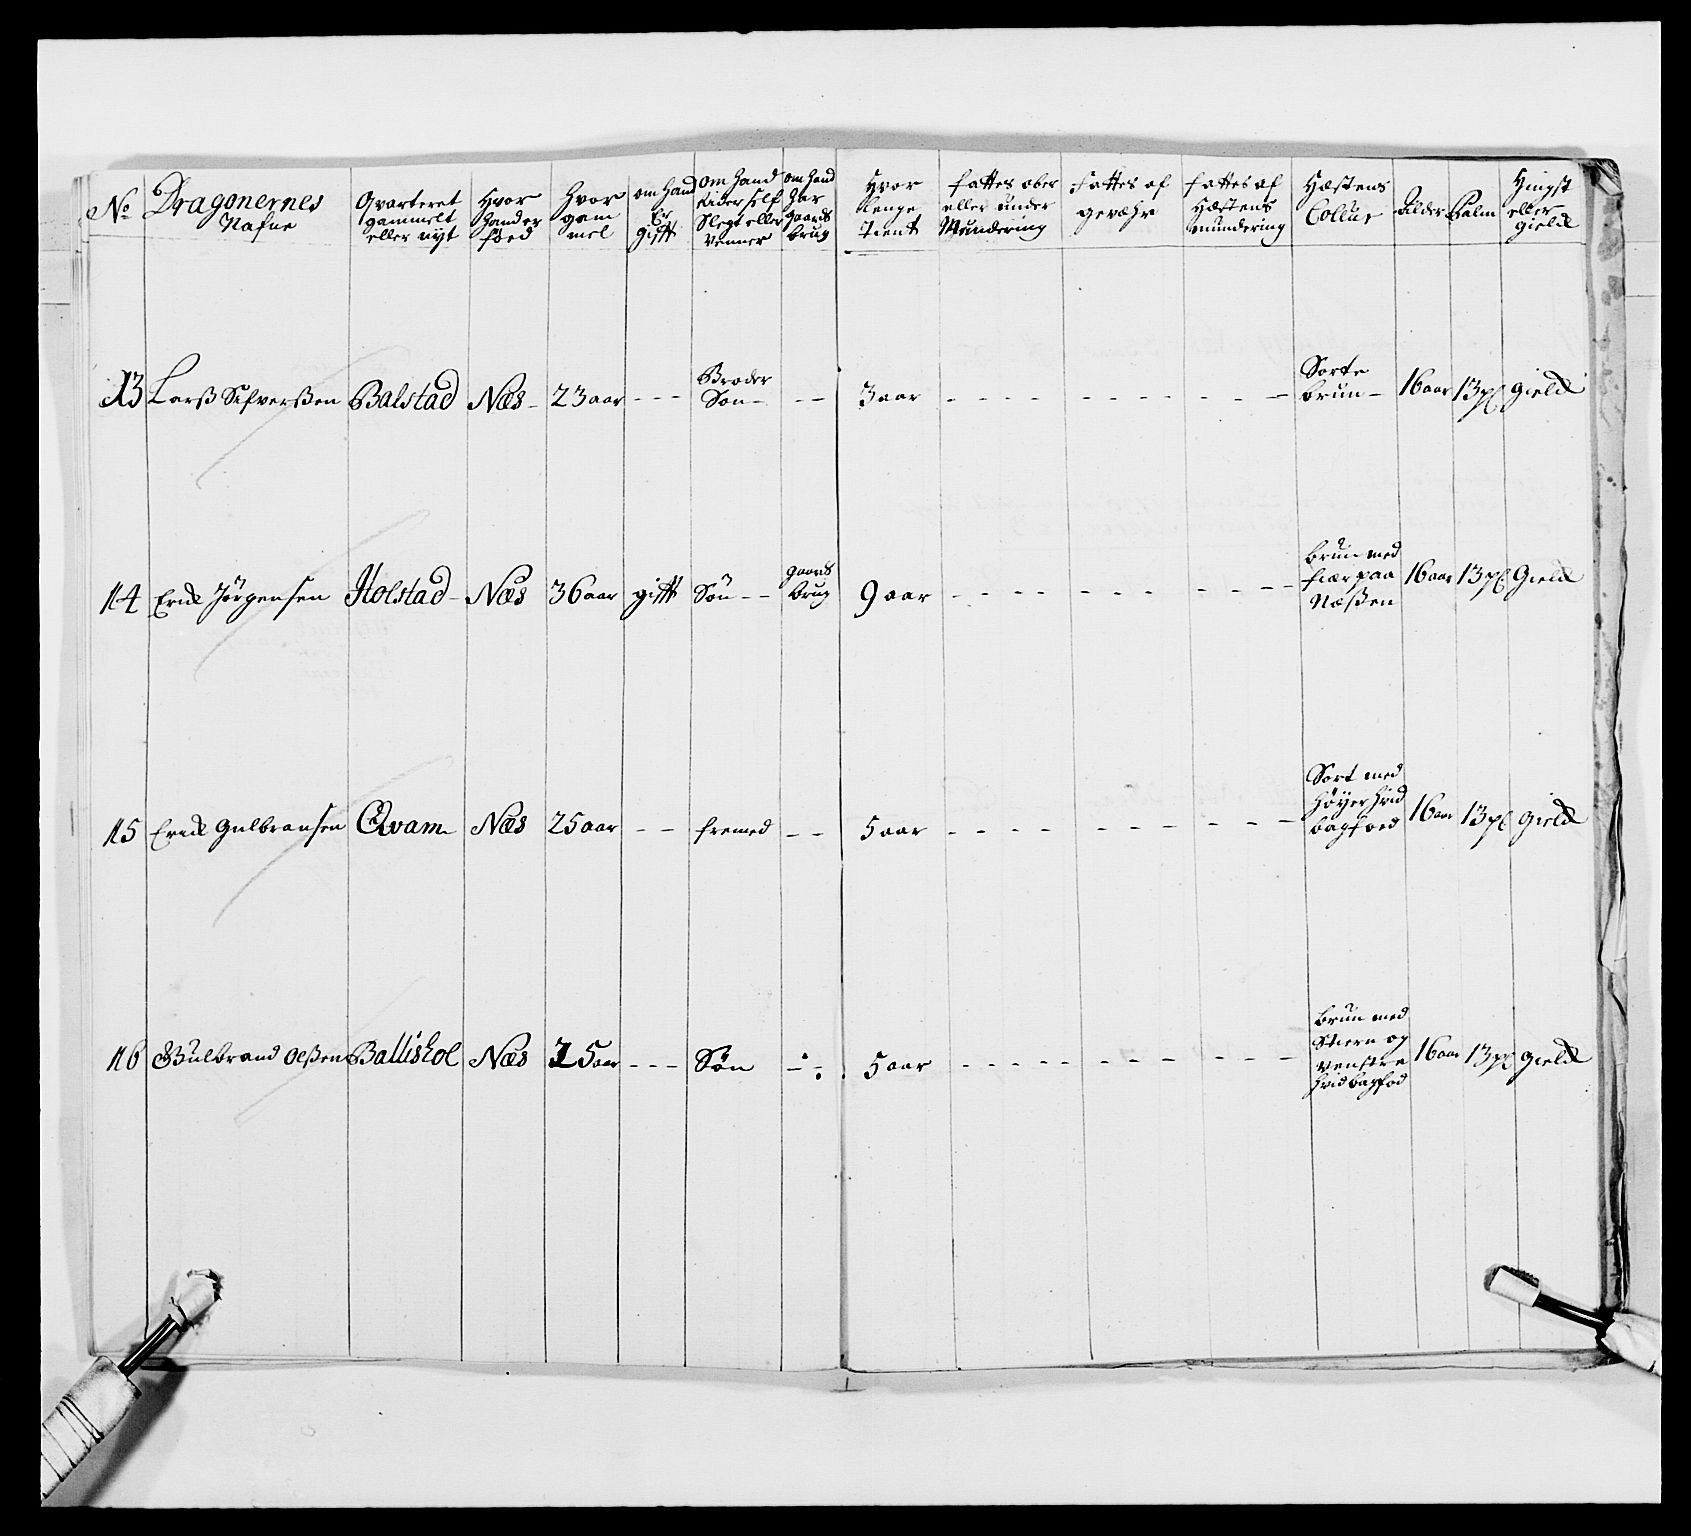 No Dragonernes Nafne | Qvarteret gammelt eller nyt | Hvor hand erføed | Hvor gammel | om hand Er gifft | om hand Rider self Slegt eller Venner | om hand har gaards brug | Hvor lenge tient | fattes ober eller under Mundering | fattes af gevæhr | fattes af Hæstens mundering | Hæstens Colleur | Alder | Palm | Hingst eller gield
13 Larss Sifverssen | Balstad | Næs | 23 aar | --- | Broder Søn | -- | 3 aar | - - - | Sorte brun | 16 aar | 13 pl | gield
14 Erick Jörgensen | Holstad | Næs | 36 aar | gifft | Sön | gaards brug | 9 aar | - - - | brun med fiær paa Næssen | 16 aar | 13 pl | Gield
15 Erick Gulbransen | Qvam | Næs | 25 aar | -- | fremed | -- | 5 aar | - - - | Sort med høyer hvid bagfoed | 16 aar | 13 pl | gield
16 Gulbrand Olssen | Ballishol | Næs | 25 aar | --- | Søn | -- | 5 aar | - - - | brun med Stiern og venstre hvid bagfod | 16 aar | 13 pl | gield